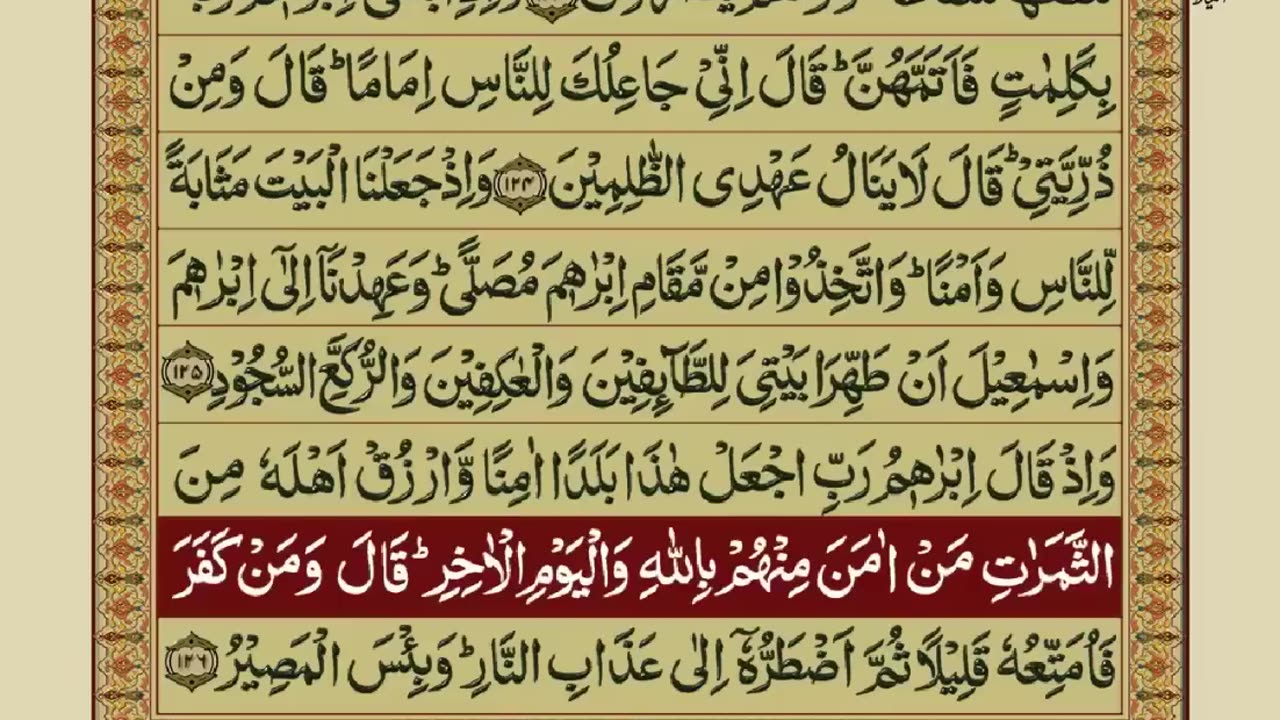 بِكَلِمٰتٍ فَاَتَمَّهُنَّ ؕ قَالَ اِنِّیْ جَاعِلُكَ لِلنَّاسِ اِمَامًا ؕ قَالَ وَمِنْ
ذُرِّیَّتِیْ ؕ قَالَ لَا یَنَالُ عَهْدِی الظّٰلِمِیْنَ ۝۱۲۴ وَاِذْ جَعَلْنَا الْبَیْتَ مَثَابَةً
لِّلنَّاسِ وَاَمْنًا ؕ وَاتَّخِذُوْا مِنْ مَّقَامِ اِبْرٰهٖمَ مُصَلًّی ؕ وَعَهِدْنَاۤ اِلٰۤی اِبْرٰهٖمَ
وَاِسْمٰعِیْلَ اَنْ طَهِّرَا بَیْتِیَ لِلطَّآىِٕفِیْنَ وَالْعٰكِفِیْنَ وَالرُّكَّعِ السُّجُوْدِ ۝۱۲۵
وَاِذْ قَالَ اِبْرٰهٖمُ رَبِّ اجْعَلْ هٰذَا بَلَدًا اٰمِنًا وَّارْزُقْ اَهْلَهٗ مِنَ
الثَّمَرٰتِ مَنْ اٰمَنَ مِنْهُمْ بِاللّٰهِ وَالْیَوْمِ الْاٰخِرِ ؕ قَالَ وَمَنْ كَفَرَ
فَاُمَتِّعُهٗ قَلِیْلًا ثُمَّ اَضْطَرُّهٗۤ اِلٰی عَذَابِ النَّارِ ؕ وَبِئْسَ الْمَصِیْرُ ۝۱۲۶